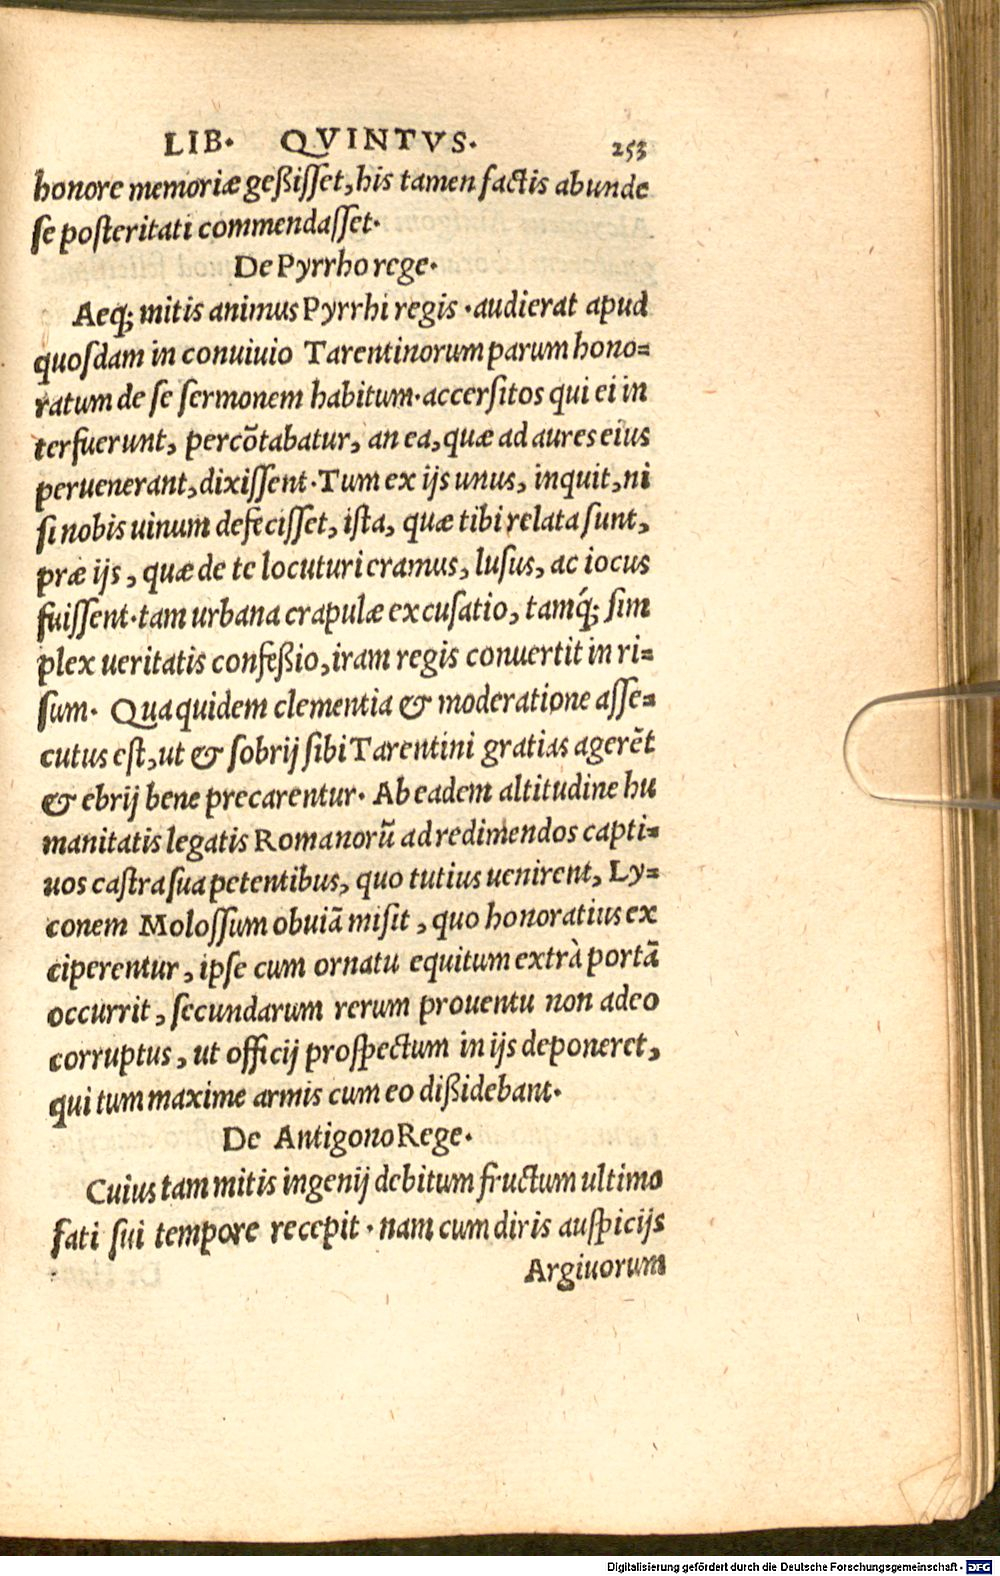 LIB· QVINTVS· 253
honore memoriæ geßiſſet, his tamen factis abunde
ſe poſteritati commendaſſet·
De Pyrrho rege·
Aeq; mitis animus Pyrrhi regis ·audierat apud
quoſdam in conuiuio Tarentinorum parum hono=
ratum de ſe ſermonem habitum·accerſitos qui ei in
terfuerunt, percõtabatur, an ea, quæ ad aures eius
peruenerant, dixiſſent·Tum ex ijs unus, inquit, ni
ſi nobis uinum defeciſſet, iſta, quæ tibi relata ſunt,
præ ijs, quæ de te locuturi eramus, luſus, ac iocus
fuiſſent·tam urbana crapulæ excuſatio, tamq́; ſim
plex ueritatis confeßio, iram regis conuertit in ri=
ſum· Qua quidem clementia & moderatione aſſe=
cutus eſt, ut & ſobrij ſibi Tarentini gratias agerẽt
& ebrij bene precarentur· Ab eadem altitudine hu
manitatis legatis Romanorũ ad redimendos capti=
uos caſtra ſua petentibus, quo tutius uenirent, Ly=
conem Moloſſum obuiã miſit, quo honoratius ex
ciperentur, ipſe cum ornatu equitum extrà portã
occurrit, ſecundarum rerum prouentu non adeo
corruptus, ut officij proſpectum in ijs deponeret,
qui tum maxime armis cum eo dißidebant·
De Antigono Rege·
Cuius tam mitis ingenij debitum fructum ultimo
fati ſui tempore recepit · nam cum diris auſpicijs
Argiuorum
Digitalisierung gefördert durch die Deutsche Forschungsgemeinschaft - DFG